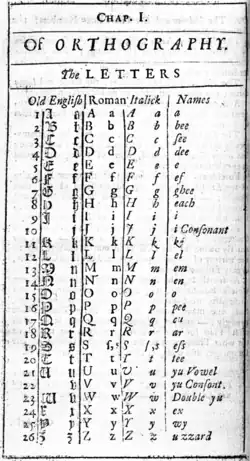 CHAP. I.
Of ORTHOGRAPHY.
The LETTERS
Old Engliſh Roman Italick Names
1 A a A a A a a
2 B b B b B b bee
3 C c C c C c ſee
4 D d D d D d dee
5 E e E e E e e
6 F f F f F f ef
7 G g G g G g ghee
8 H h H h H h each
9 I i I i I i i
10 J j J j i Conſonant
11 K k K k K k
12 L l L l L l el
13 M m M m M m em
14 N n N n N n en
15 O o O o O o o
16 P p P p P p pee
17 Q q Q q Q q cu
18 R r R r R r ar
19 S s S ſ,s S ſ,s eſs
20 T t T t T t tee
21 U u U u U u yu Vowel
22 V v V v yu Conſont.
23 W w W w W w Double yu
24 X x X x X x ex
25 Y y Y y Y y wy
26 Z z Z z Z z uzzard